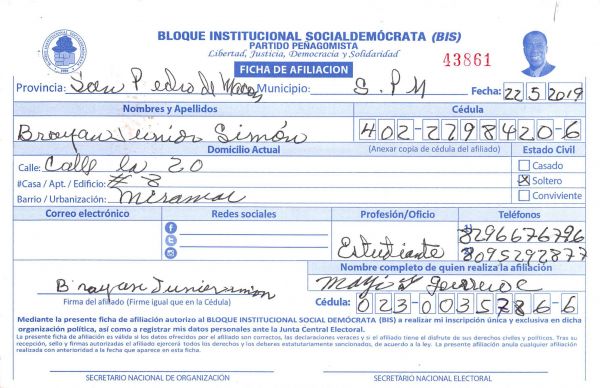 BLOQUE INSTITUCIONAL SOCIALDEMÓCRATA (BIS)
PARTIDO PEÑAGOMISTA
Libertad, Justicia, Democracia y Solidaridad
FICHA DE AFILIACION
43861
Provincia: San Pedro de Macoris Municipio: S.P.M Fecha: 22 5 2019
Nombres y Apellidos Cédula
Brayan Junior Simón 402-2798420-6
Domicilio Actual (Anexar copia de cédula del afiliado) Estado Civil
Calle: Calle la 20 Casado
#Casa / Apt. / Edificio: # 8 Soltero
Barrio / Urbanización: Miramar Conviviente
Correo electrónico Redes sociales Profesión/Oficio Teléfonos
8296676796
Estudiante 8095292877
Nombre completo de quien realiza la afiliación
Brayan Junior Simon
Firma del afiliado (Firme igual que en la Cédula) Cédula: 023-0035786-6
Mediante la presente ficha de afiliación autorizo al BLOQUE INSTITUCIONAL SOCIAL DEMÓCRATA (BIS) a realizar mi inscripción única y exclusiva en dicha
organización política, así como a registrar mis datos personales ante la Junta Central Electoral.
La presente ficha de afiliación es válida si los datos ofrecidos por el afiliado son correctos, las declaraciones veraces y si el afiliado tiene el disfrute de sus derechos civiles y políticos. Tras su
recepción, sello y firmas autorizadas el afiliado ejercerá todos los derechos y los deberes estatutariamente sancionados, de acuerdo a la ley. La presente afiliación anula cualquier afiliación
realizada con anterioridad a la fecha que aparece en esta ficha.
SECRETARIO NACIONAL DE ORGANIZACIÓN SECRETARIO NACIONAL ELECTORAL